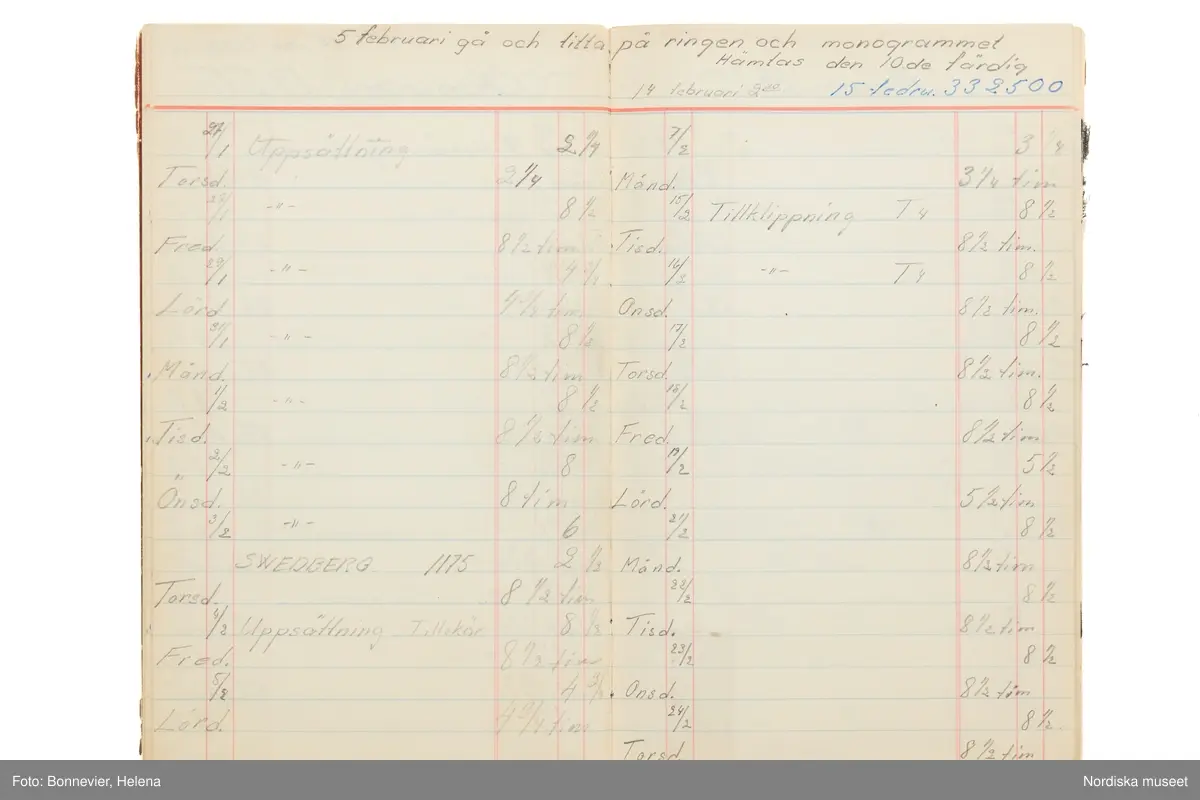 5 februari gå och titta på ringen och monogrammet
Hämtas den 10.de färdig
14 februari 15 febru. 332500
27/1 Uppsättning 2 1/4
Torsd. 2 1/4
-"- 8 1/2
Fred. 8 1/2 tim
29/1 -"- 4
Lörd tim
-"- 8 1/2
Månd. 8 1/2 tim
1/2 -"- 8 1/2
Tisd. 8 1/2 tim
2/2 -"- 8
Onsd. 8 tim
3/2 -"- 6
SWEDBERG 1175 2 1/2
Torsd. 8 1/2 tim
4/2 Uppsättning 8 1/2
Fred. 8 1/2 tim
5/2 4 3/4
Lörd. 4 3/4 tim
7/2 3 1/4
Månd. 3 1/4 tim
15/2 Tillklippning T4 8 1/2
Tisd. 8 1/2 tim.
16/2 -"- T4 8 1/2
Onsd. 8 1/2 tim.
17/2 8 1/2
Torsd. 8 1/2 tim.
18/2 8 1/2
Fred. 8 1/2 tim
19/2 5 1/2
Lörd. 5 1/2 tim
21/2 8 1/2
Månd. 8 1/2 tim
22/2 8 1/2
Tisd. 8 1/2 tim
23/2 8 1/2
Onsd. 8 1/2 tim
24/2 8 1/2
Torsd 8 1/2 tim
Foto: Bonnevier, Helena
Nordiska museet